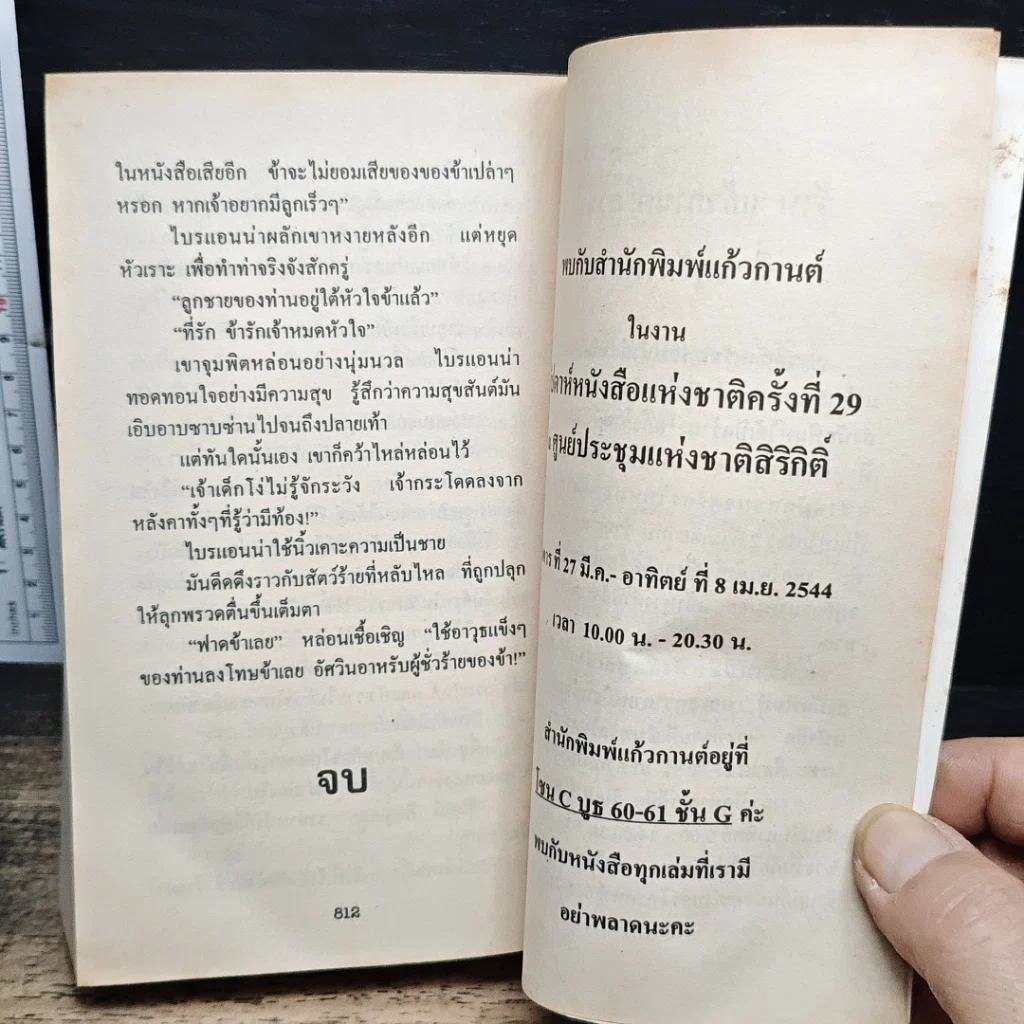 ในหนังสือเสียอีก ข้าจะไม่ยอมเสียของของข้าเปล่าๆ
หรอก หากเจ้าอยากมีลูกเร็วๆ”
ไบรแอนน่าผลักเขาหงายหลังอีก แต่หยุด
หัวเราะ เพื่อทำท่าจริงจังสักครู่
“ลูกชายของท่านอยู่ใต้หัวใจข้าแล้ว”
“ที่รัก ข้ารักเจ้าหมดหัวใจ”
เขาจุมพิตหล่อนอย่างนุ่มนวล ไบรแอนน่า
ทอดทอนใจอย่างมีความสุข รู้สึกว่าความสุขสันต์มัน
เอิบอาบซาบซ่านไปจนถึงปลายเท้า
แต่ทันใดนั้นเอง เขาก็คว้าไหล่หล่อนไว้
“เจ้าเด็กโง่ไม่รู้จักระวัง เจ้ากระโดดลงจาก
หลังคาทั้งๆที่รู้ว่ามีท้อง!”
ไบรแอนน่าใช้นิ้วเคาะความเป็นชาย
มันดีดดึงราวกับสัตว์ร้ายที่หลับไหล ที่ถูกปลุก
ให้ลุกพรวดตื่นขึ้นเต็มตา
“ฟาดข้าเลย” หล่อนเชื้อเชิญ “ใช้อาวุธแข็งๆ
ของท่านลงโทษข้าเลย อัศวินอาหรับผู้ชั่วร้ายของข้า!”
จบ
812
พบกับสำนักพิมพ์แก้วกานต์
ในงาน
ดาห์หนังสือแห่งชาติครั้งที่ 29
ศูนย์ประชุมแห่งชาติสิริกิติ์
ที่ 27 มี.ค.- อาทิตย์ ที่ 8 เม.ย. 2544
เวลา 10.00 น. - 20.30 น.
สำนักพิมพ์แก้วกานต์อยู่ที่
โซน C บูธ 60-61 ชั้น G ค่ะ
พบกับหนังสือทุกเล่มที่เรามี
อย่าพลาดนะคะ